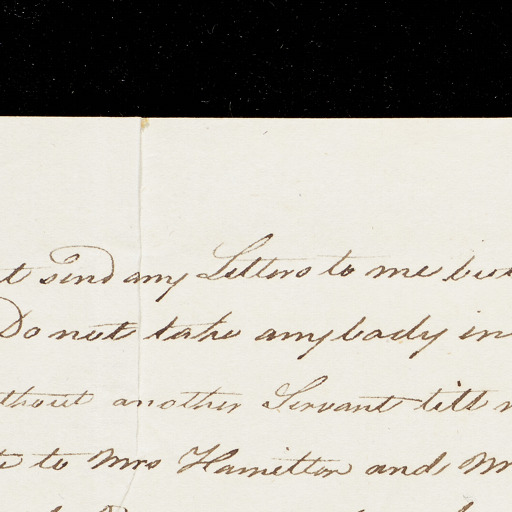 t Send any Letters to me but
Do not take any body in
thout another Servant till
to Mrs Hamilton and Mr